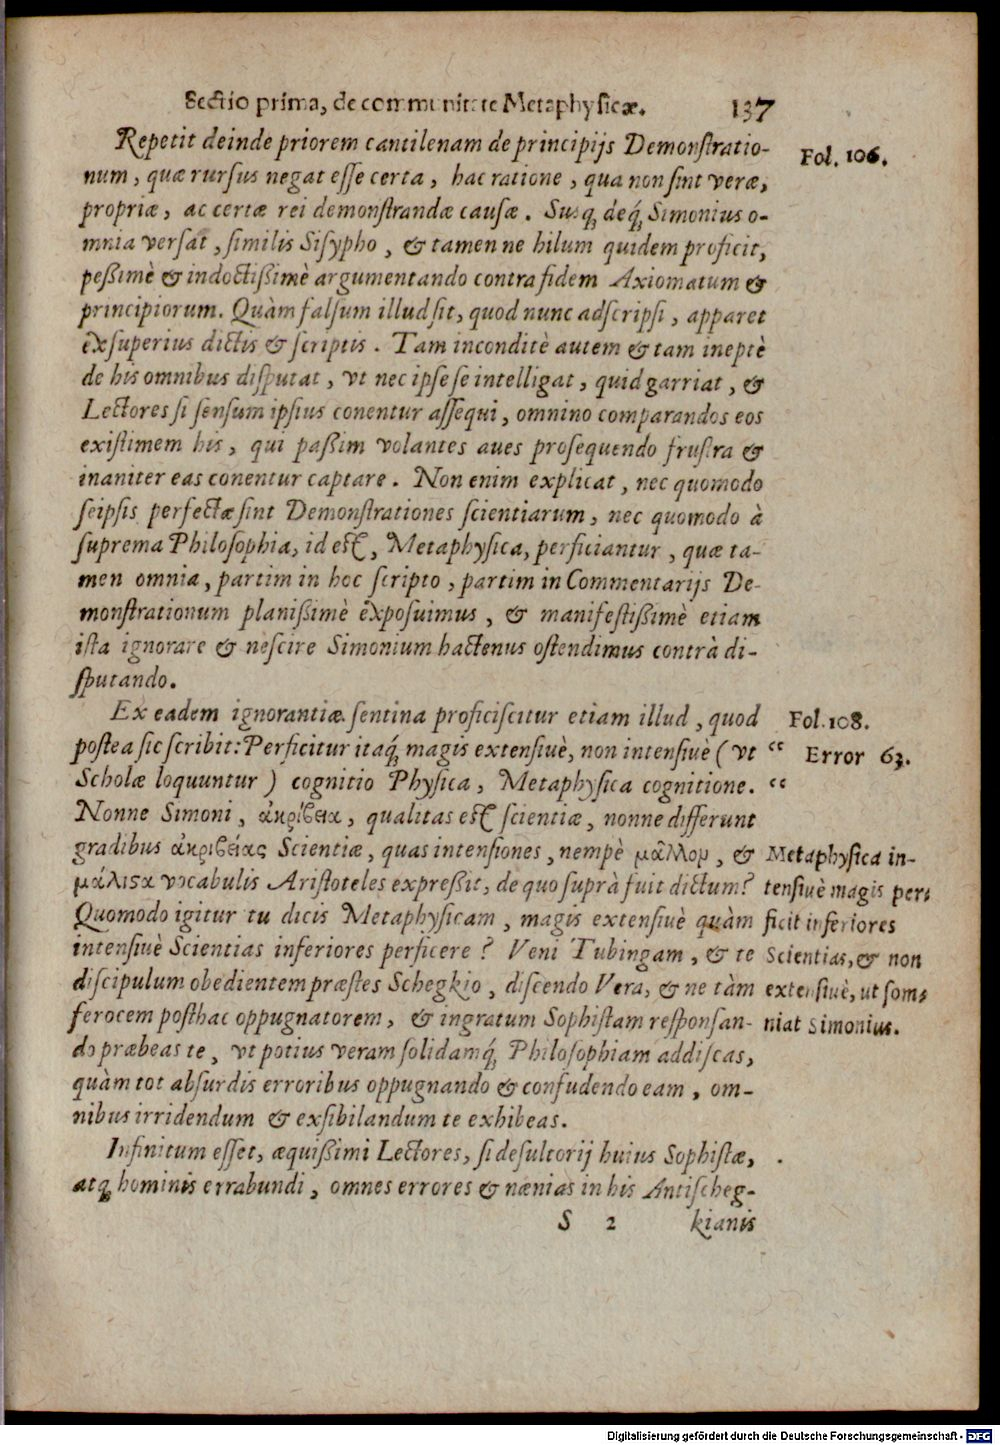 Sectio prima, de communitate Metaphysicæ. 137
Repetit deinde priorem cantilenam de principijs Demonſtratio-
Fol. 106.
num, quæ rurſus negat eſſe certa, hac ratione, qua non ſint veræ,
propriæ, ac certæ rei demonſtrandæ cauſæ. Suſq́; deq́; Simonius o-
mnia verſat, ſimilis Siſypho, & tamen ne hilum quidem proficit,
peßimè & indoctißimè argumentando contra fidem Axiomatum &
principiorum. Quàm falſum illud ſit, quod nunc adſcripſi, apparet
ex ſuperius dictis & ſcriptis. Tam inconditè autem & tam ineptè
de his omnibus diſputat, vt nec ipſe ſe intelligat, quid garriat, &
Lectores ſi ſenſum ipſius conentur aſſequi, omnino comparandos eos
exiſtimem his, qui paßim volantes aues proſequendo fruſtra &
inaniter eas conentur captare. Non enim explicat, nec quomodo
ſeipſis perfectæ ſint Demonſtrationes ſcientiarum, nec quomodo à
ſuprema Philoſophia, id eſt, Metaphyſica, perficiantur, quæ ta-
men omnia, partim in hoc ſcripto, partim in Commentarijs De-
monſtrationum planißimè expoſuimus, & manifeſtißimè etiam
iſta ignorare & neſcire Simonium hactenus oſtendimus contrà di-
ſputando.
Ex eadem ignorantiæ ſentina proficiſcitur etiam illud, quod
Fol. 108.
poſtea ſic ſcribit: Perficitur itaq́; magis extenſiuè, non intenſiuè (vt
“ Error 63.
Scholæ loquuntur) cognitio Phyſica, Metaphyſica cognitione.
“
Nonne Simoni, ἀκρίβεια, qualitas eſt ſcientiæ, nonne differunt
gradibus ἀκριβείας Scientiæ, quas intenſiones, nempè μᾶλλον, &
μάλιϛα vocabulis Ariſtoteles expreßit, de quo ſuprà fuit dictum?
Quomodo igitur tu dicis Metaphyſicam, magis extenſiuè quàm
intenſiuè Scientias inferiores perficere? Veni Tubingam, & te
diſcipulum obedientem præſtes Schegkio, diſcendo Vera, & ne tàm
ferocem poſthac oppugnatorem, & ingratum Sophiſtam reſponſan-
do præbeas te, vt potius veram ſolidamq́; Philoſophiam addiſcas,
quàm tot abſurdis erroribus oppugnando & confudendo eam, om-
nibus irridendum & exſibilandum te exhibeas.
Metaphyſica in-
tenſiuè magis per-
ficit inferiores
Scientias, & non
extenſiuè, ut ſom-
niat Simonius.
Infinitum eſſet, æquißimi Lectores, ſi deſultorij huius Sophiſtæ,
atq́; hominis errabundi, omnes errores & nænias in his Antiſcheg-
S 2 kianis
Digitalisierung gefördert durch die Deutsche Forschungsgemeinschaft - DFG